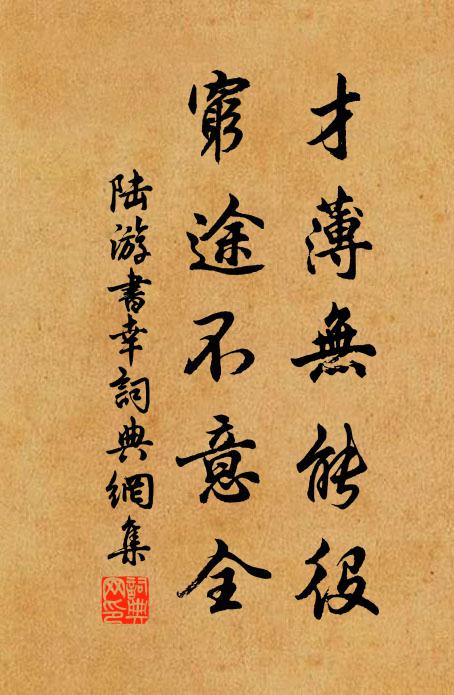 才薄無能役
窮途不意全
陆游書幸詞典網集
詞典
网印